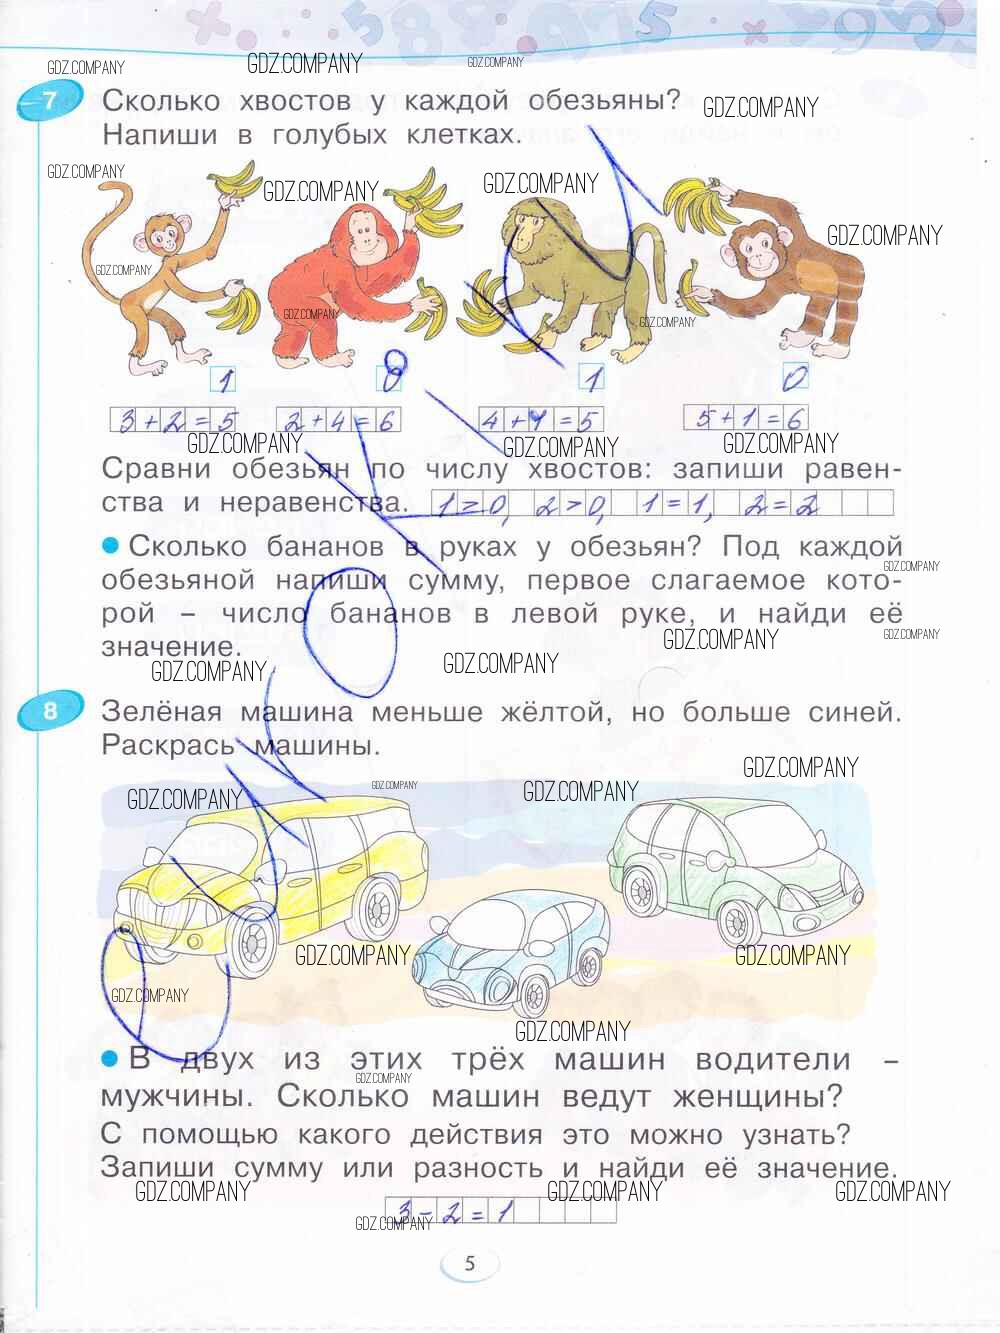 GDZ.COMPANY GDZ.COMPANY GDZ.COMPANY
7 Сколько хвостов у каждой обезьяны? GDZ.COMPANY
Напиши в голубых клетках.
GDZ.COMPANY GDZ.COMPANY GDZ.COMPANY
GDZ.COMPANY
GDZ.COMPANY
GDZ.COMPANY GDZ.COMPANY
1 0 1 0
3+2=5 2+4=6 4+1=5 5+1=6
GDZ.COMPANY GDZ.COMPANY GDZ.COMPANY
Сравни обезьян по числу хвостов: запиши равен-
ства и неравенства. 1>0, 2>0, 1=1, 2=2
Сколько бананов в руках у обезьян? Под каждой
GDZ.COMPANY
обезьяной напиши сумму, первое слагаемое кото-
рой – число бананов в левой руке, и найди её
GDZ.COMPANY GDZ.COMPANY
значение.
GDZ.COMPANY GDZ.COMPANY
8 Зелёная машина меньше жёлтой, но больше синей.
Раскрась машины.
GDZ.COMPANY
GDZ.COMPANY GDZ.COMPANY GDZ.COMPANY
GDZ.COMPANY GDZ.COMPANY
GDZ.COMPANY
GDZ.COMPANY
В двух из этих трёх машин водители –
GDZ.COMPANY
мужчины. Сколько машин ведут женщины?
С помощью какого действия это можно узнать?
Запиши сумму или разность и найди её значение.
GDZ.COMPANY GDZ.COMPANY GDZ.COMPANY
3-2=1
GDZ.COMPANY
5